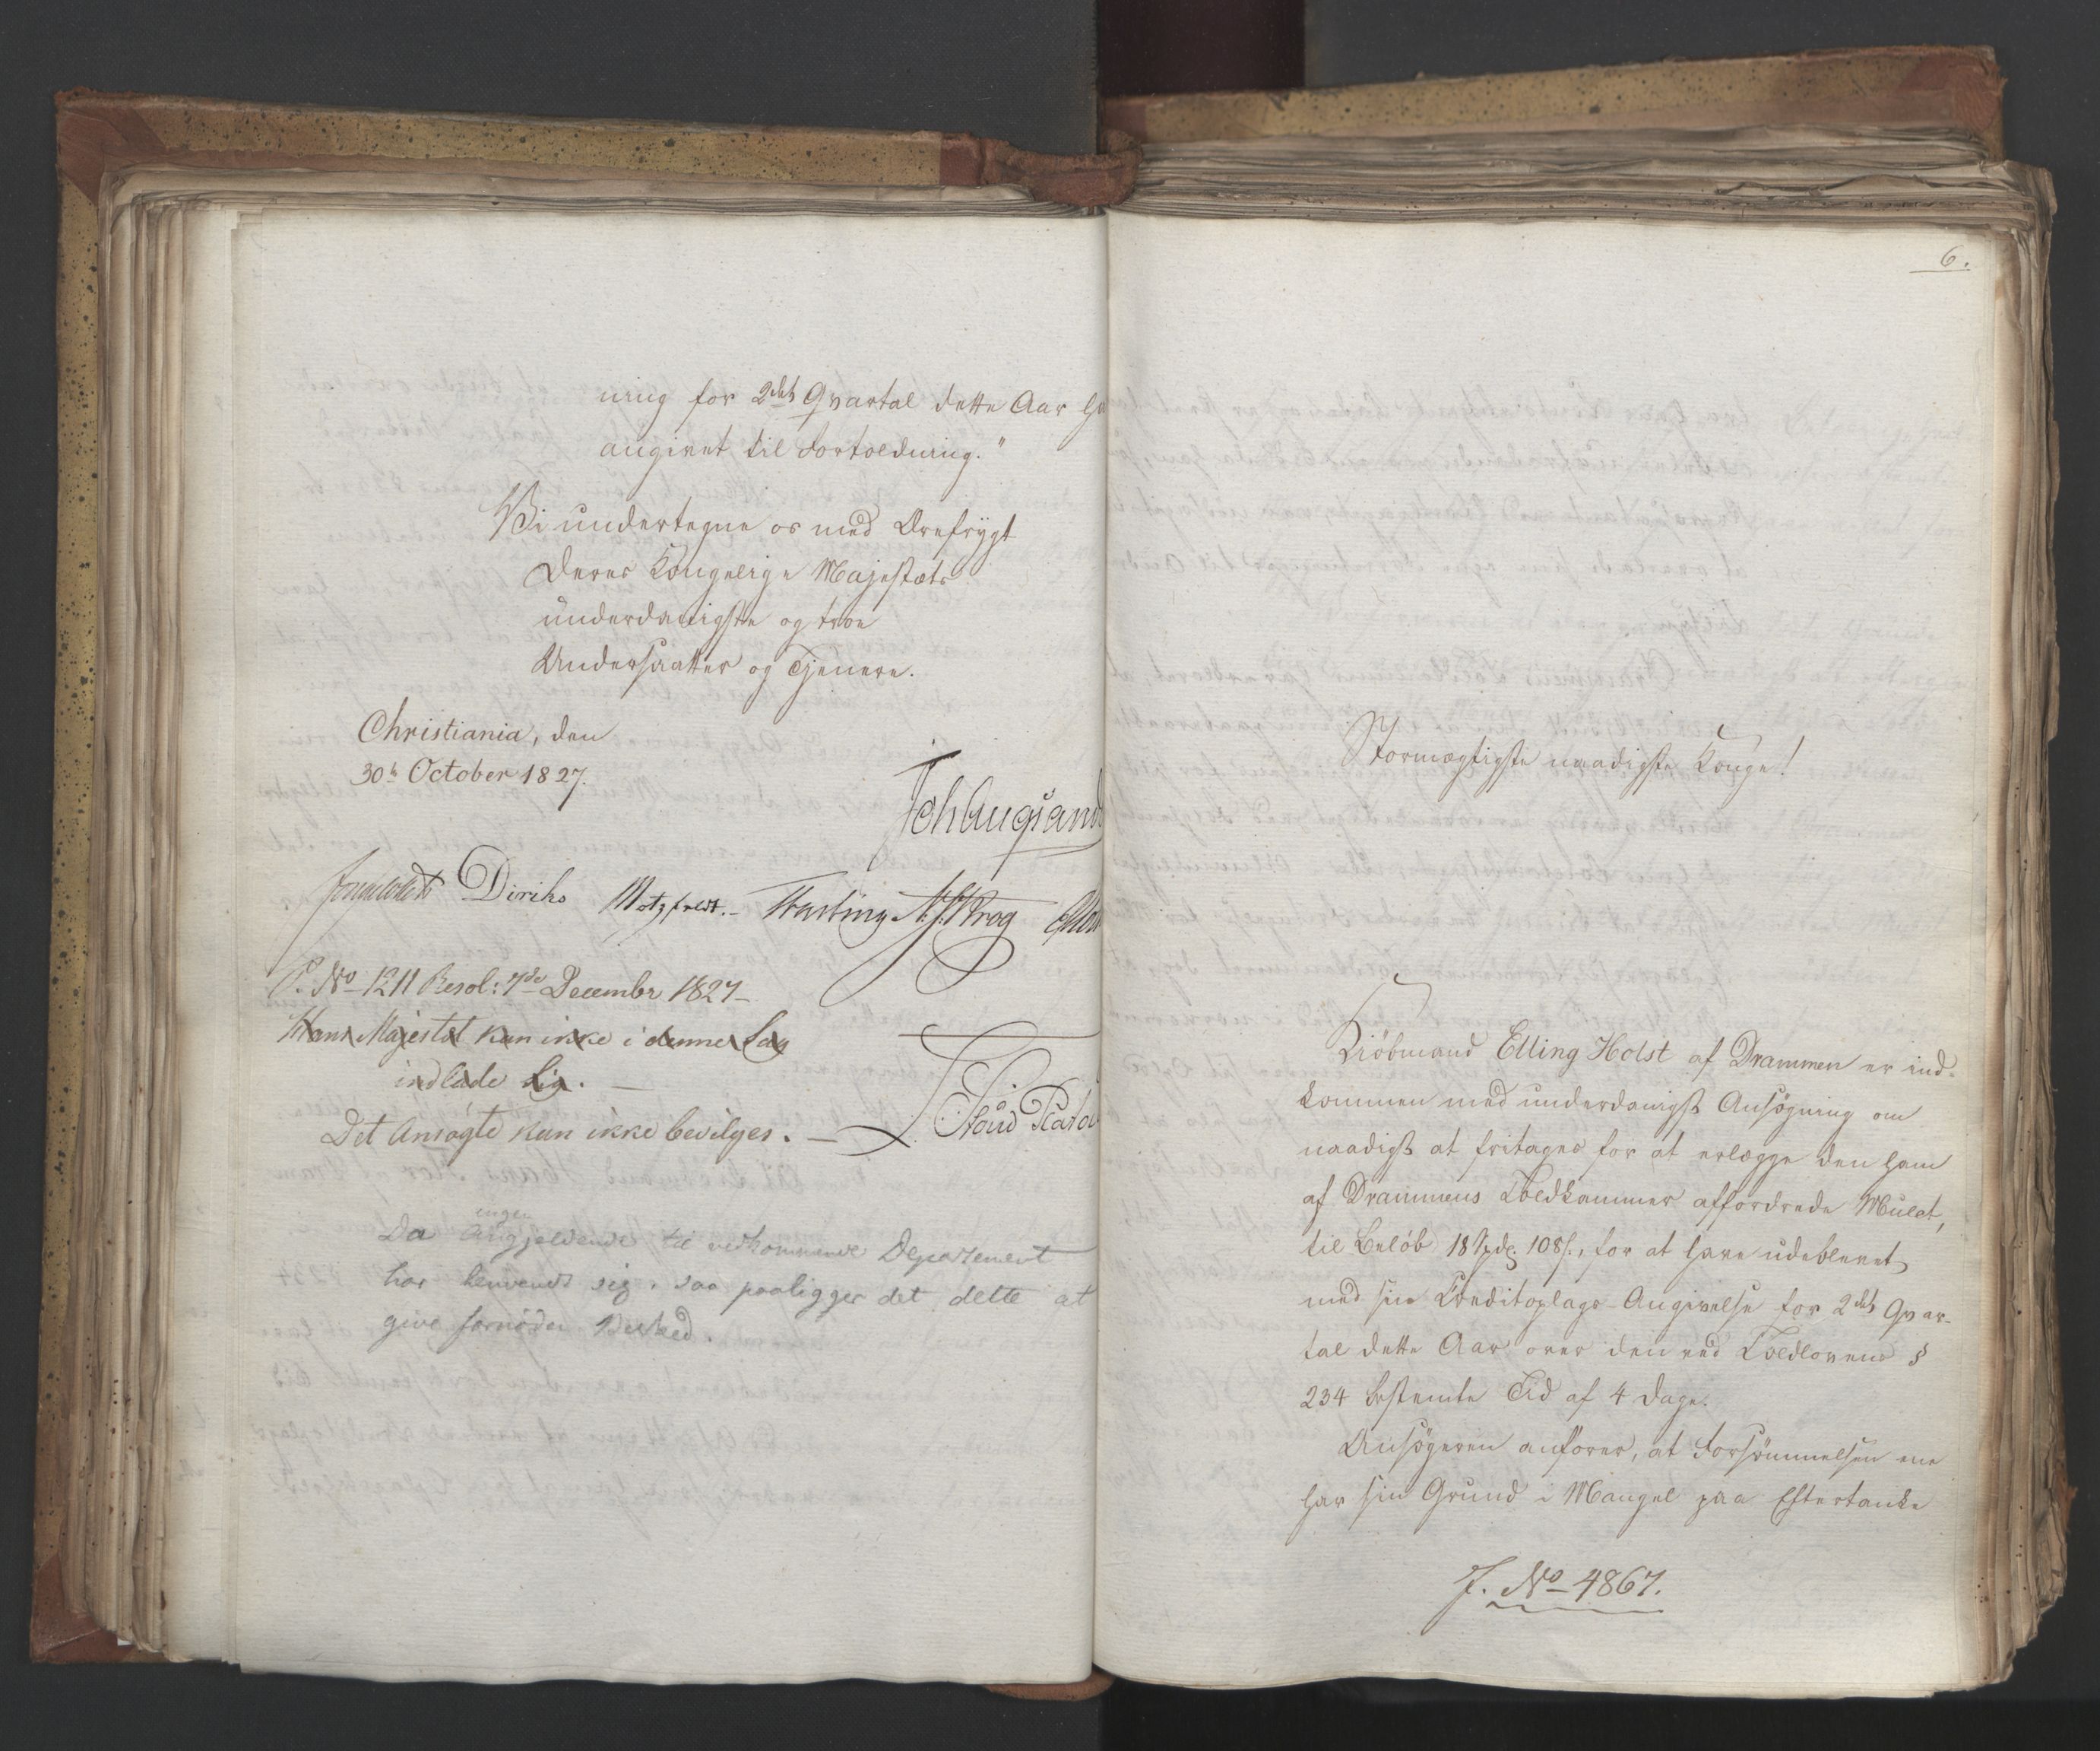 ning for 2det Qvartal dette Aar ha
angivet til Fortoldning."
Vi undertegne os med Ærefrygt
Deres Kongelige Majestæts
underdanigste og troe
Undersaatter og Tjenere.
Christiania, den
30te October 1827.
Joh Aug Sand
Diriks Motzfeldt.- Fasting Krog
P. No 1211 Resol: 7de Decembr 1827-
Hans Majestæt kan ikke i denne Sag
indlade sig. -
Det Ansøgte kan ikke bevilges. -
ingen
Da Angjeldende til vedkommende Departement
har henvendt sig, saa paaligger det dette at
give fornøden Besked.
6.
Stormægtigste naadigste Konge!
Kiöbmand Elling Holst af Drammen er ind-
kommen med underdanigst Ansøgning om
naadigst at fritages for at erlægge den ham
af Drammens Toldkammer affordrede Mulct,
til Beløb 18 Spd. 108 s., for at have udeblevet
med sin Creditoplags-Angivelse for 2det Qvar-
tal dette Aar over den ved Toldlovens §
234 bestemte Tid af 4 Dage.
Ansøgeren anfører, at Forsømmelsen ene
har sin Grund i Mangel paa Eftertanke
J. No 4867.